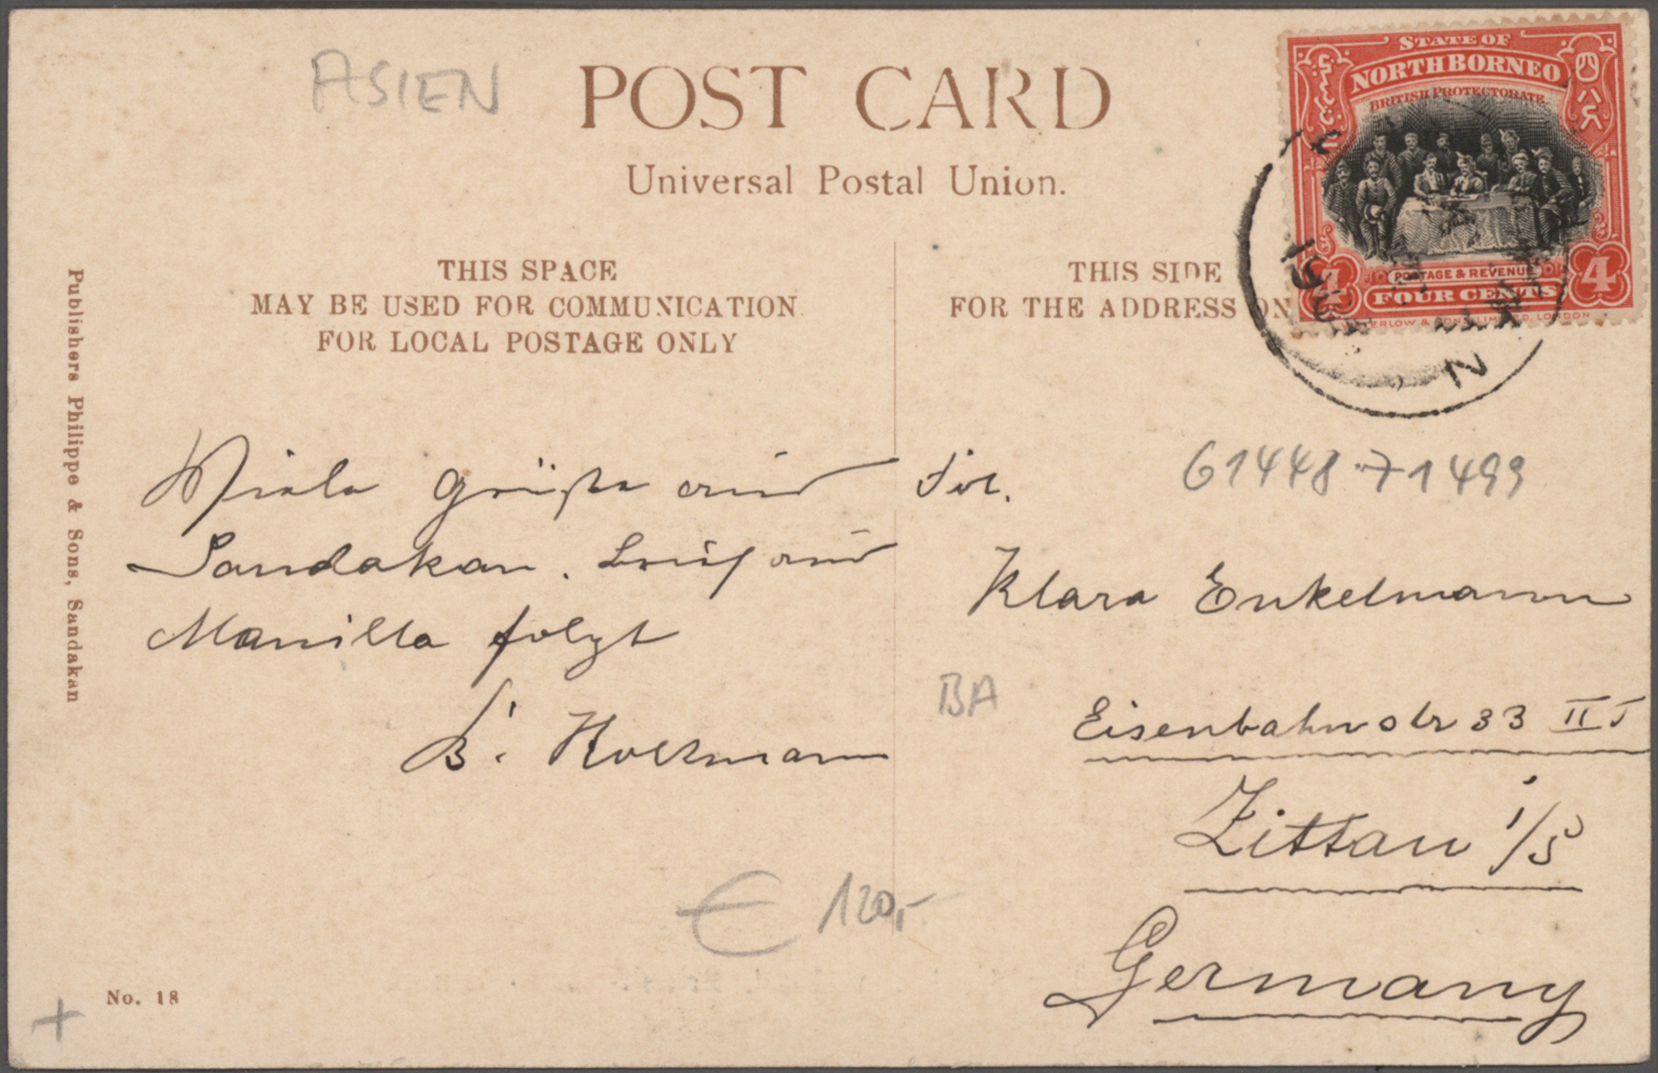 ASIEN
POST CARD
Universal Postal Union.
STATE OF
NORTH BORNEO
BRITISH PROTECTORATE
POSTAGE & REVENUE
4 4
FOUR CENTS
LONDON
THIS SPACE
MAY BE USED FOR COMMUNICATION
FOR LOCAL POSTAGE ONLY
THIS SIDE
FOR THE ADDRESS ON
Publishers Philippe & Sons, Sandakan
61448·71499
Viele Grüße aus
Sandakan. Brief aus
Manilla folgt
Klara Enkelmann
BA
Eisenbahnstr 33 II
Zittau i/S
Germany
€ 120,-
No. 18